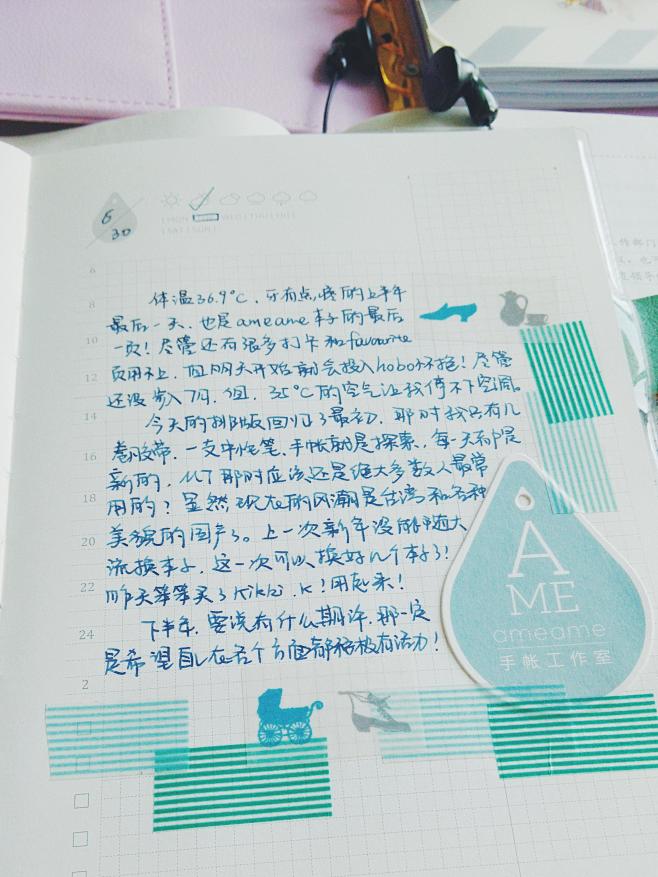 6/30
MON WED THU FRI
SAT SUN
6
8
10
12
14
16
18
20
22
24
2
体温36.9℃，牙有点疼的上半年
最后一天，也是ameame本子的最后
一页！尽管还有很多打卡和favourite
页用不上，但明天开始就会投入hobo怀抱！尽管
还没步入7月，但，35℃的空气让我停不下空调。
今天的排版回归了最初，那时我只有几
卷胶带，一支中性笔，手帐就是探索，每一天都是
新的，MT那时应该还是绝大多数人最常
用的？显然现在的风潮是台湾和各种
美貌的国产了。上一次新年没能随大
流换本子，这一次可以换好几个本子了！
昨天笨笨买了kikki.k！用起来！
下半年，要说有什么期许，那一定
是希望自己在各个方面都积极有活力！
A
ME
ameame
手帐工作室